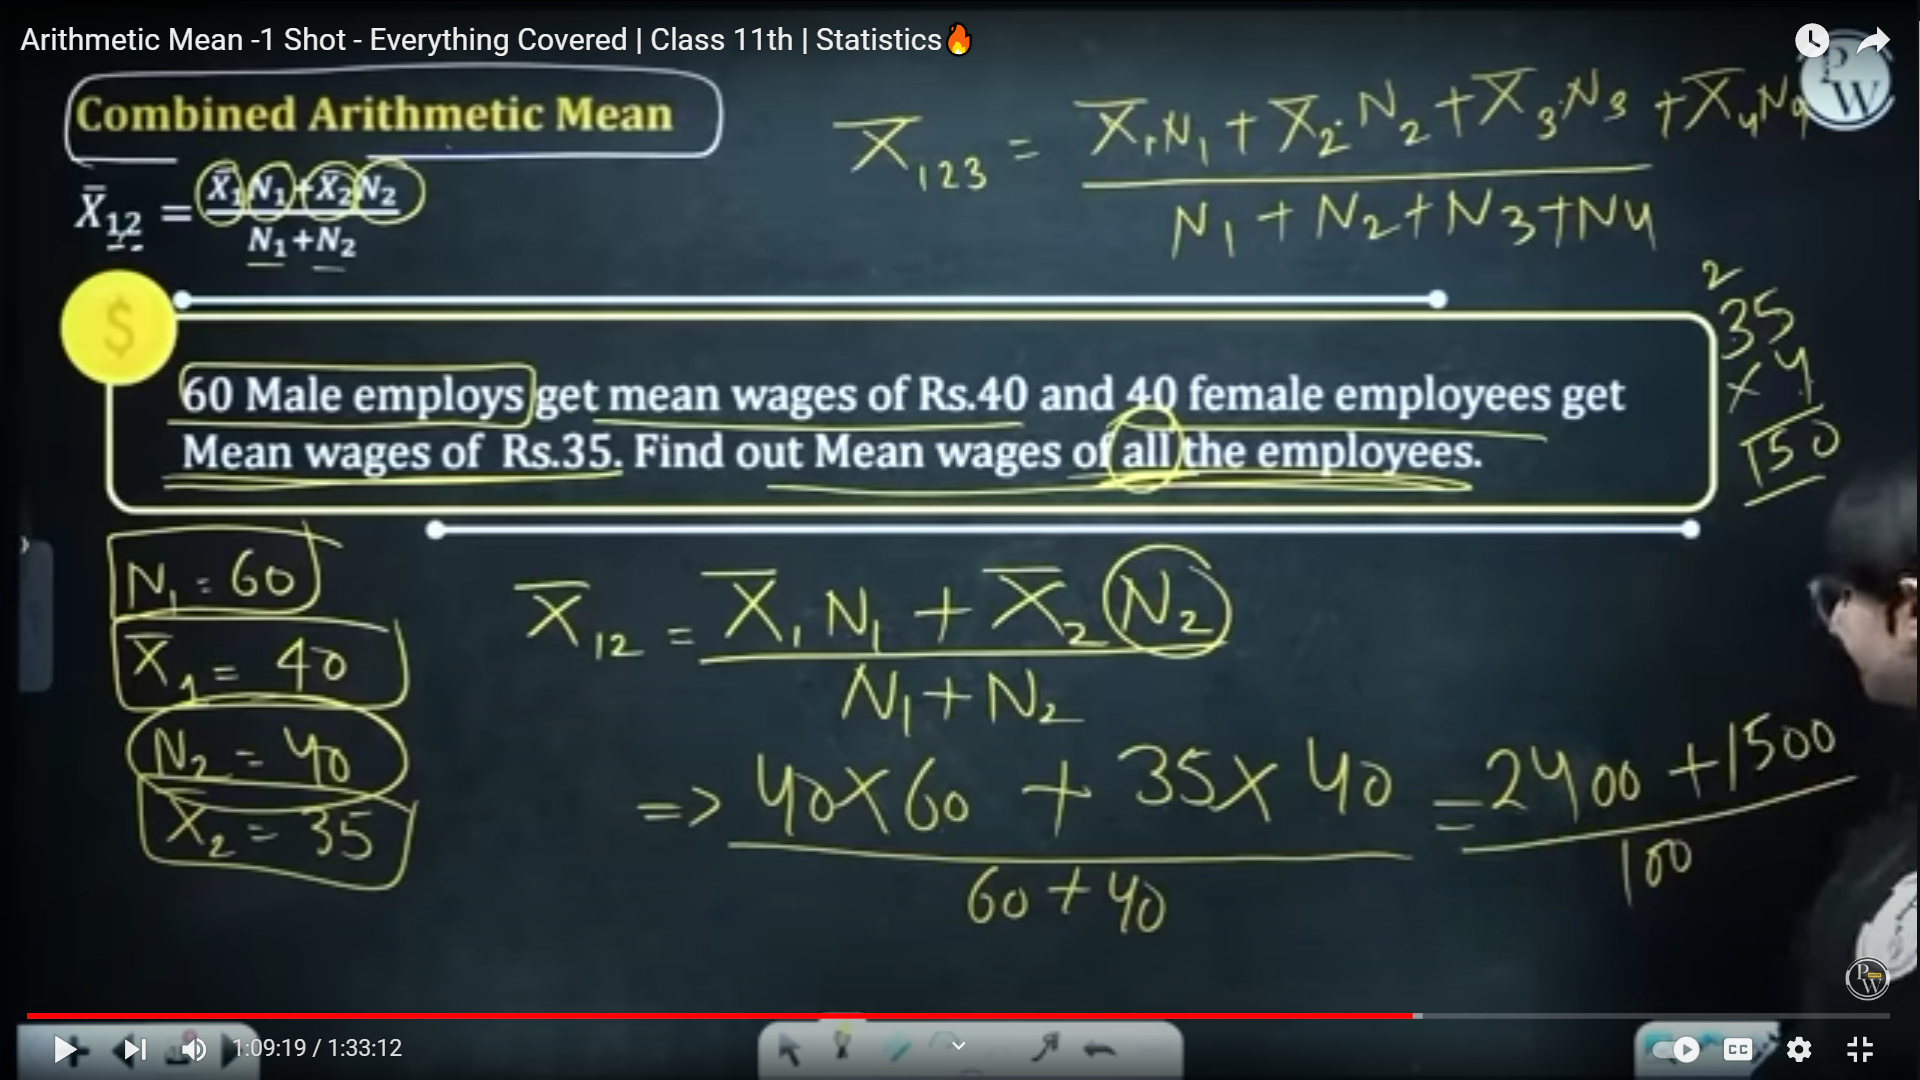 Arithmetic Mean -1 Shot - Everything Covered | Class 11th | Statistics🔥
Combined Arithmetic Mean
X̄₁₂ = (X̄₁N₁+X̄₂N₂)/(N₁+N₂)
X̄₁₂₃ = (X̄₁N₁ + X̄₂N₂ + X̄₃N₃ + X̄₄N₄)/(N₁ + N₂ + N₃ + N₄)
PW
$
60 Male employs get mean wages of Rs.40 and 40 female employees get
Mean wages of Rs.35. Find out Mean wages of all the employees.
2
35
x 4
150
N₁ = 60
X̄₁ = 40
N₂ = 40
X̄₂ = 35
X̄₁₂ = (X̄₁N₁ + X̄₂N₂)/(N₁ + N₂)
=> (40 x 60 + 35 x 40)/(60 + 40) = (2400 + 1500)/100
PW
1:09:19 / 1:33:12
CC